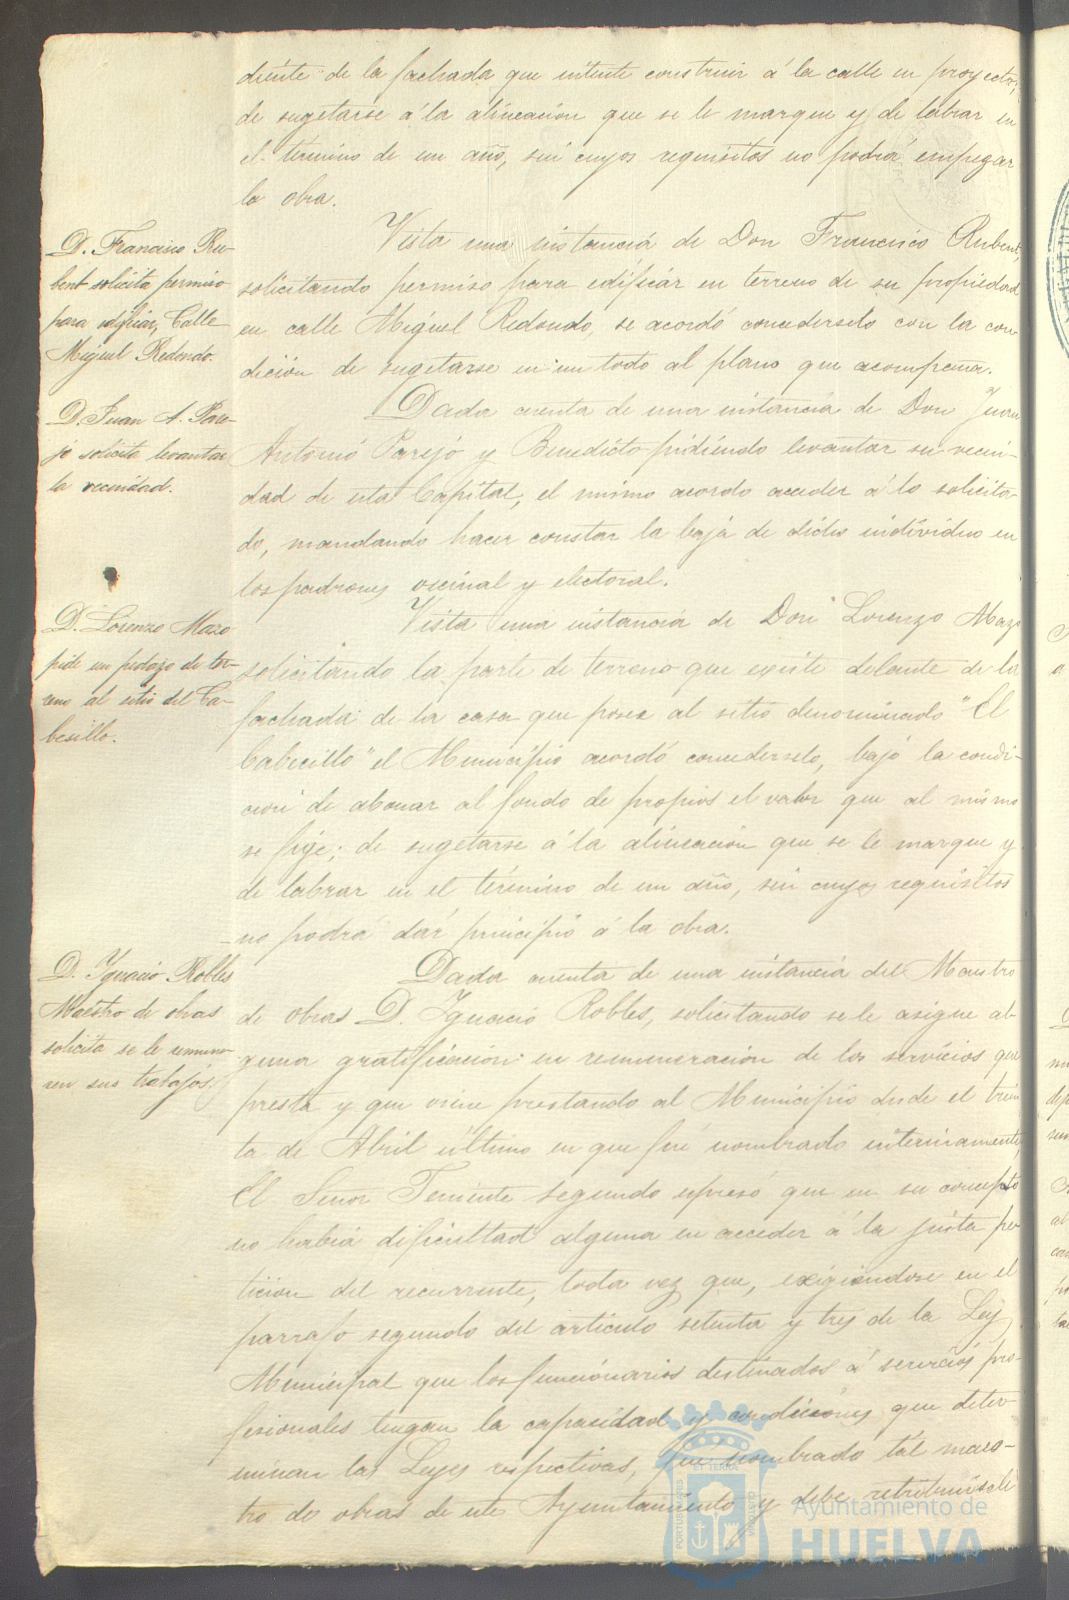 diente de la fachada que intente construir á la calle en proyecto,
de sugetarse á la alineación que se le marque y de labrar en
el término de un año, sin cuyos requisitos no podrá empezar
la obra.
D. Francisco Ru-
bent solicita permiso
para edificar, Calle
Miguel Redondo.
Vista una instancia de Don Francisco Rubent,
solicitando permiso para edificar en terreno de su propiedad
en calle Miguel Redondo, se acordó concederselo con la con-
dición de sugetarse en un todo al plano que acompaña.
D. Juan A. Pare-
jo solicita levantar
la vecindad.
Dada cuenta de una instancia de Don Juan
Antonio Parejo y Benedicto pidiendo levantar su vecin-
dad de esta Capital, el mismo acordo acceder á lo solicita-
do, mandando hacer constar la baja de dicho individuo en
los padrones vecinal y electoral.
D. Lorenzo Mazo
pide un pedazo de ter-
reno al sitio del Ca-
besillo.
Vista una instancia de Don Lorenzo Mazo
solicitando la parte de terreno que existe delante de la
fachada de la casa que posee al sitio denominado "El
Cabecillo" el Municipio acordó concederselo, bajo la condi-
ción de abonar al fondo de propios el valor que al mismo
se fige; de sugetarse á la alineación que se le marque y
de labrar en el término de un año, sin cuyos requisitos
no podrá dár principio á la obra.
D. Ignacio Robles
Maestro de obras
solicita se le remune-
ren sus trabajos.
Dada cuenta de una instancia del Maestro
de obras D. Ignacio Robles, solicitando se le asigne al-
guna gratificación en remuneración de los servicios que
presta y que viene prestando al Municipio desde el trein
ta de Abril último en que fué nombrado interinamente,
El Señor Teniente segundo espresó que en su concepto
no habia dificultad alguna en acceder á la justa pe
tición del recurrente, toda vez que, exigiendose en el
parrafo segundo del articulo setenta y tres de la Ley
Municipal que los funcionarios destinados á servicios pro-
fesionales tengan la capacidad y condiciones que deter-
minan las Leyes respectivas, fué nombrado tál maes-
tro de obras de este Ayuntamiento y debe retribuirsele
Ayuntamiento de
HUELVA